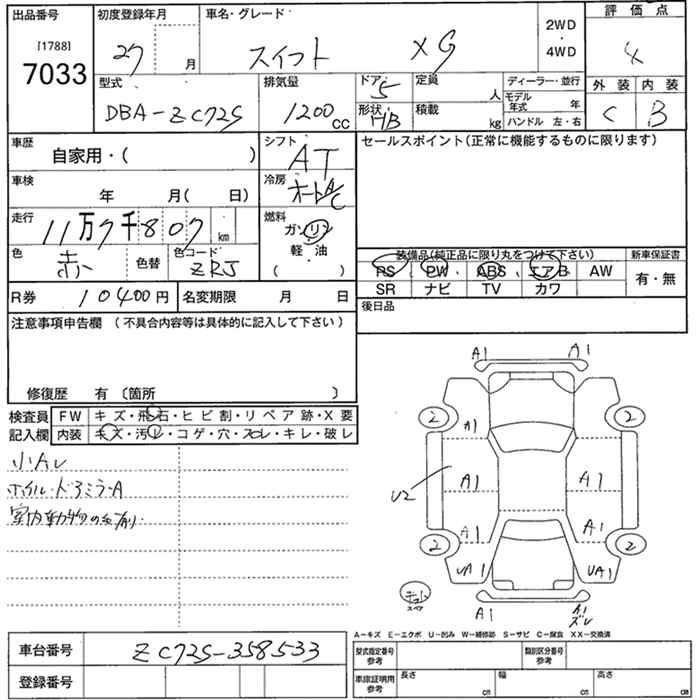 出品番号
[1788]
7033
初度登録年月
27 月
車名・グレード
スイフト XG
2WD
・
4WD
評価点
4
外装 内装
C B
型式
DBA-ZC72S
排気量
1200cc
ドア
5
形状
HB
定員
人
積載
kg
ディーラー・並行
モデル年式 年
ハンドル 左・右
車歴
自家用・( )
シフト
AT
セールスポイント(正常に機能するものに限ります)
車検
年 月( 日)
冷房
オートA/C
走行
11万7千807 km
燃料
ガソリン
軽・油
( )
色
赤
色替
色コード
ZRJ
装備品(純正品に限り丸をつけて下さい)
PS PW ABS エアB AW
SR ナビ TV カワ
新車保証書
有・無
R券 10400円
名変期限 月 日
後日品
注意事項申告欄 (不具合内容等は具体的に記入して下さい)
修復歴 有 〔箇所 〕
検査員記入欄
FW キズ・飛石・ヒビ割・リペア跡・X要
内装 キズ・汚レ・コゲ・穴・スレ・キレ・破レ
小Aレ
ホイル・ドアミラーA
室内動物の毛有り
A1 A1
2 2
A1
U2
A1 A1
A1 A1
2 2
UA1 UA1
スペア
A1 A1
ズレ
A-キズ E-エクボ U-凹み W-補修跡 S-サビ C-腐食 XX-交換済
車台番号 ZC72S-358533
登録番号
型式指定番号
参考
類別区分番号
参考
車庫証明用
参考
長さ cm
幅 cm
高さ cm